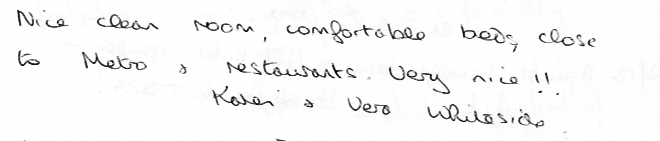 Nice clean room, comfortable beds, close
to Metro & restaurants. Very nice!!
Karen & Vera Whiteside.